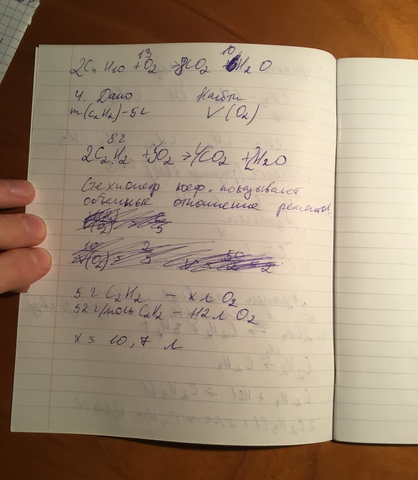 2C₄H₁₀ + 13O₂ → 8CO₂ + 10H₂O
4. Дано Найти
m(C₂H₂) - 5г V(O₂)
5г
2C₂H₂ + 5O₂ → 4CO₂ + 2H₂O
Стехиометр коэф. показывают
объемные отношение
5 г C₂H₂ — x л O₂
52 г/моль C₂H₂ — 112 л O₂
x = 10,7 л